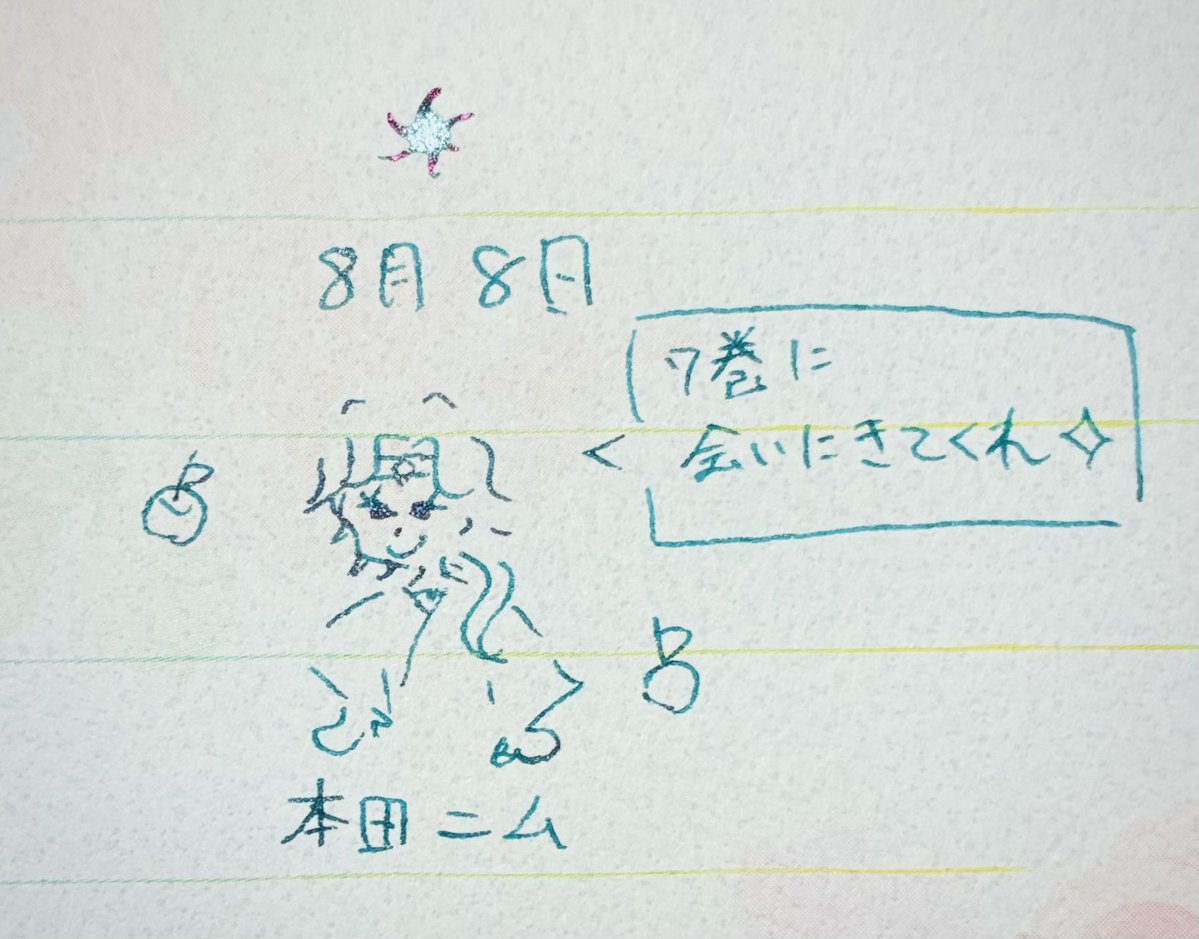 8月8日
7巻に
会いにきてくれ✧
本田ニム